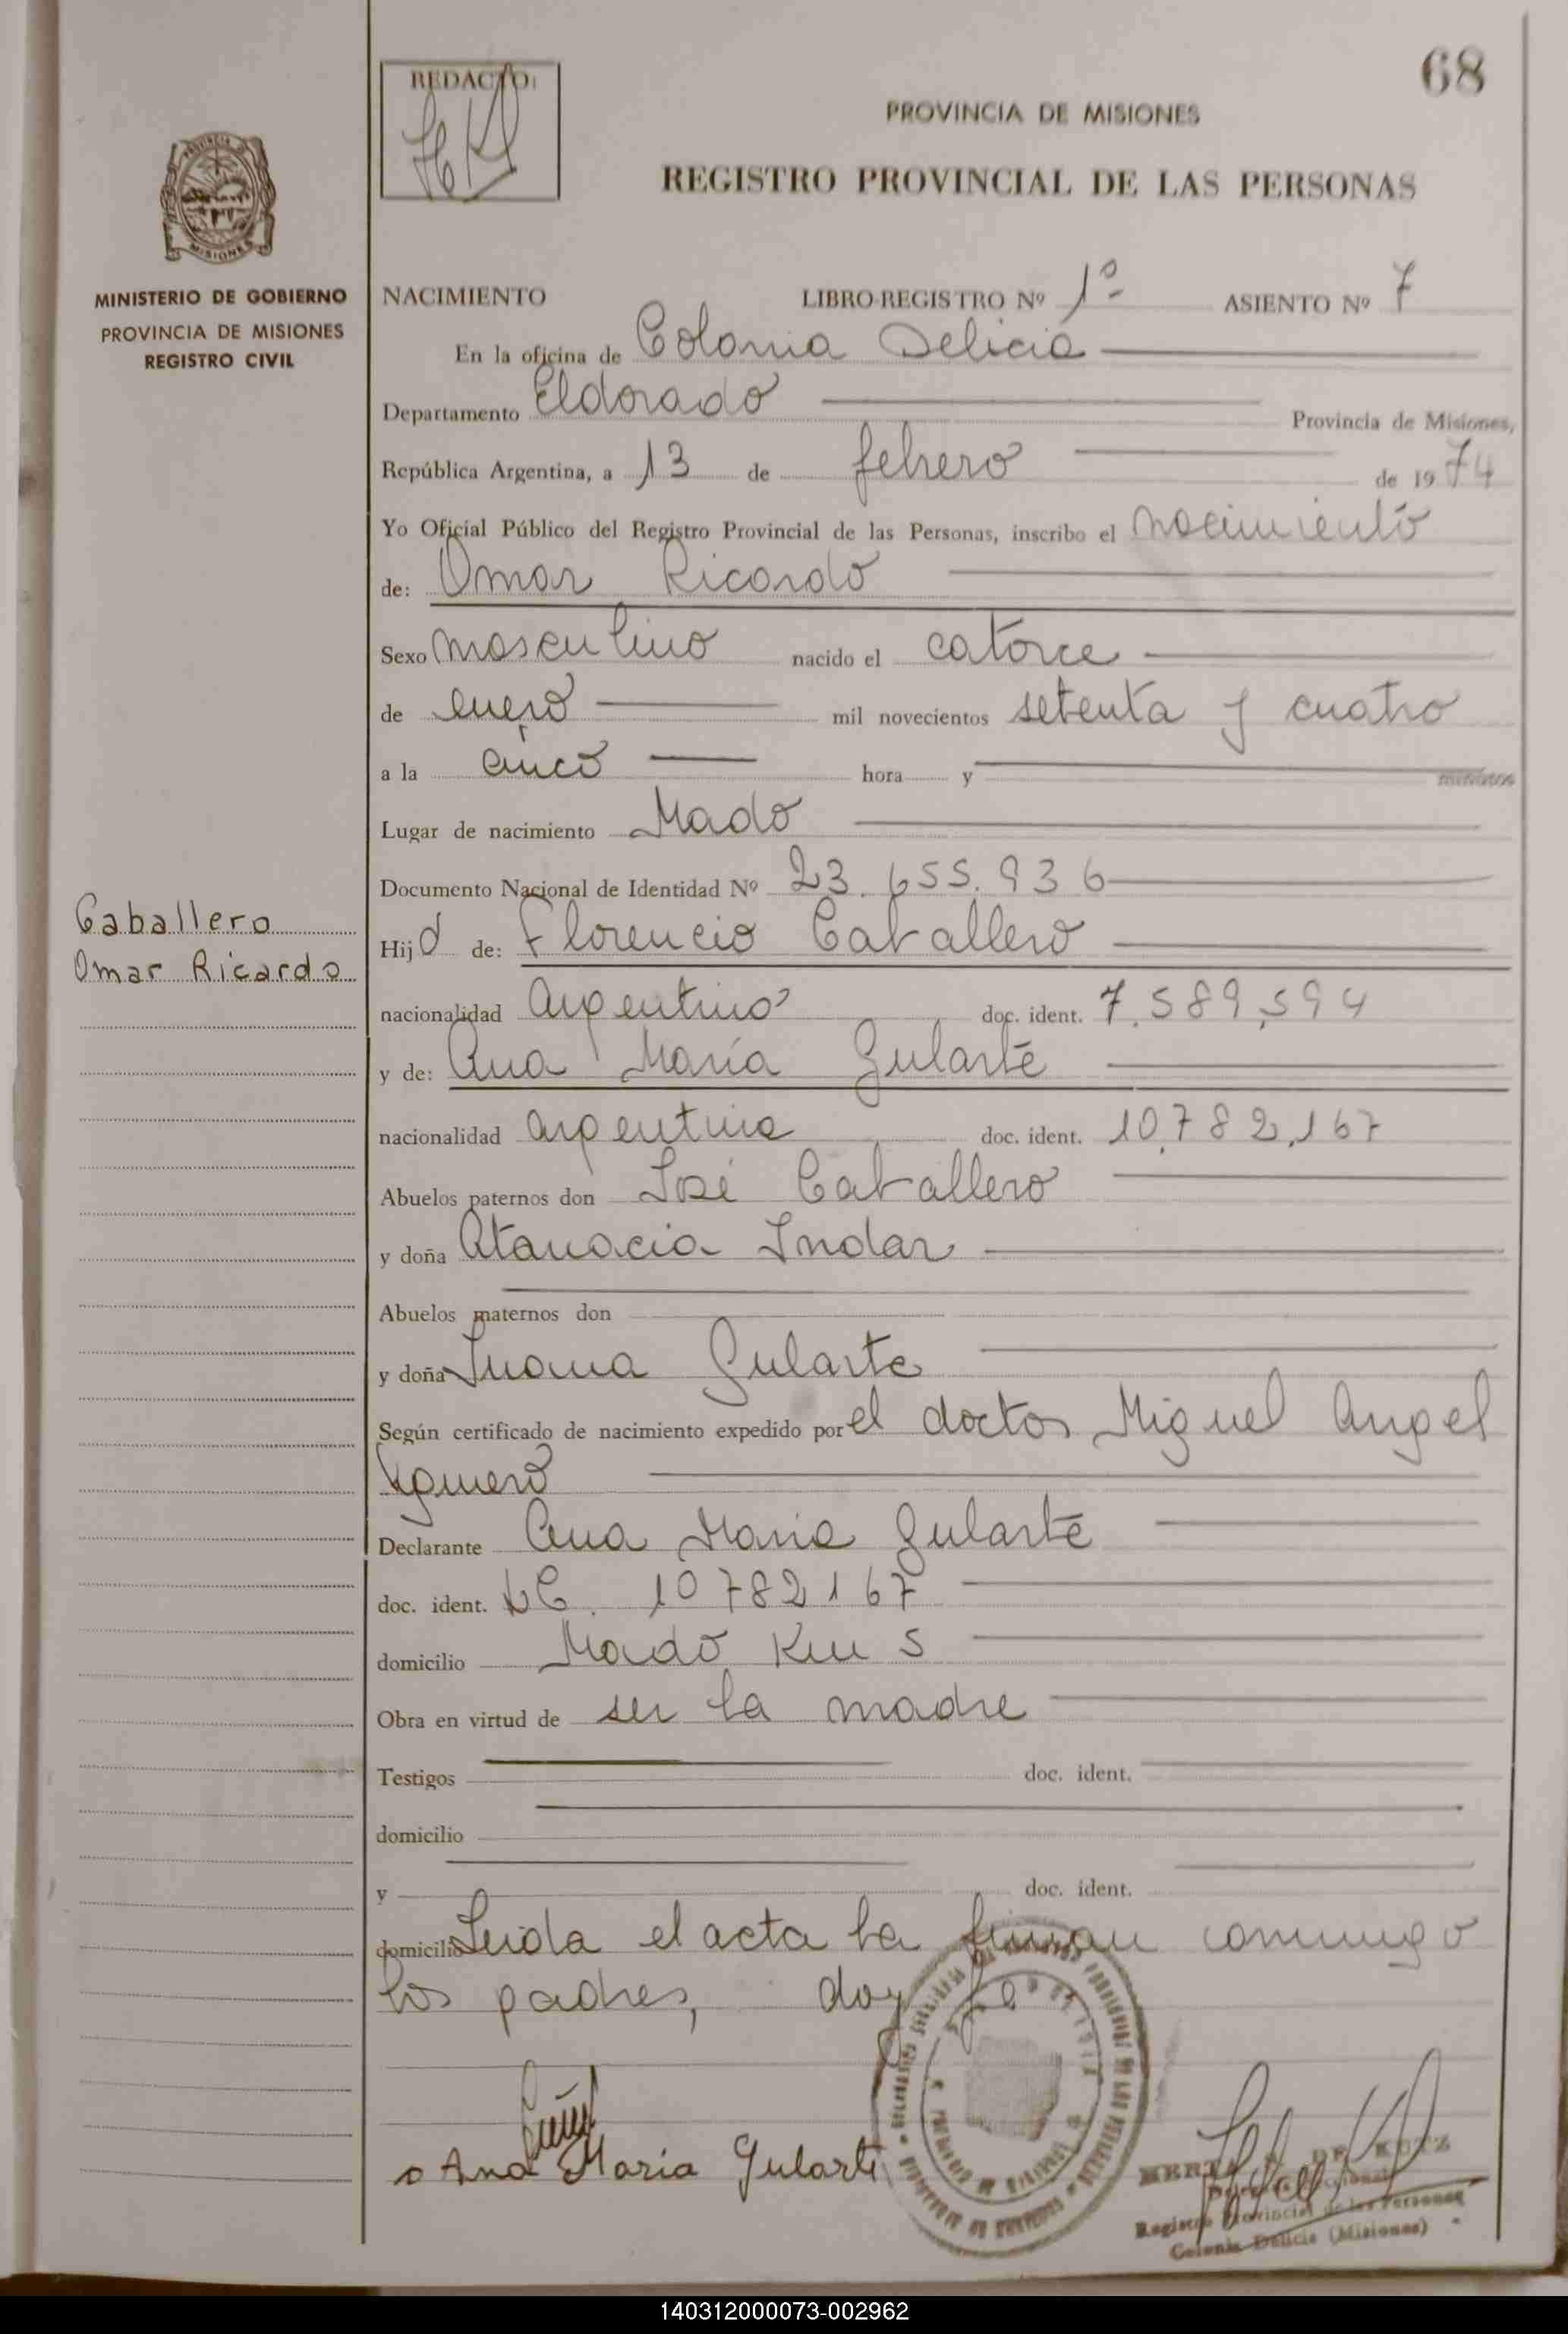 68
REDACTO:
PROVINCIA DE MISIONES
REGISTRO PROVINCIAL DE LAS PERSONAS
MISIONES
MINISTERIO DE GOBIERNO
PROVINCIA DE MISIONES
REGISTRO CIVIL
NACIMIENTO LIBRO-REGISTRO Nº 1º ASIENTO Nº 7
En la oficina de Colonia Delicia
Departamento Eldorado Provincia de Misiones,
República Argentina, a 13 de febrero de 1974
Yo Oficial Público del Registro Provincial de las Personas, inscribo el nacimiento
de: Omar Ricardo
Sexo masculino nacido el catorce
de enero mil novecientos setenta y cuatro
a la cinco hora y minutos
Lugar de nacimiento Mado
Documento Nacional de Identidad Nº 23.655.936
Caballero
Omar Ricardo
Hijo de: Florencio Caballero
nacionalidad argentino doc. ident. 7.589.594
y de: Ana María Gularte
nacionalidad argentina doc. ident. 10.782.167
Abuelos paternos don José Caballero
y doña Atanacia Indar
Abuelos maternos don
y doña Juana Gularte
Según certificado de nacimiento expedido por el doctor Miguel Angel
Declarante Ana Maria Gularte
doc. ident. LC. 10782167
domicilio Mado Km 5
Obra en virtud de ser la madre
Testigos doc. ident.
domicilio
y doc. ident.
domicilio Leida el acta la firman conmigo
los padres, doy fe
Ana Maria Gularte
DE KUTZ
Registro Provincial de las Personas
Colonia Delicia (Misiones)
140312000073-002962